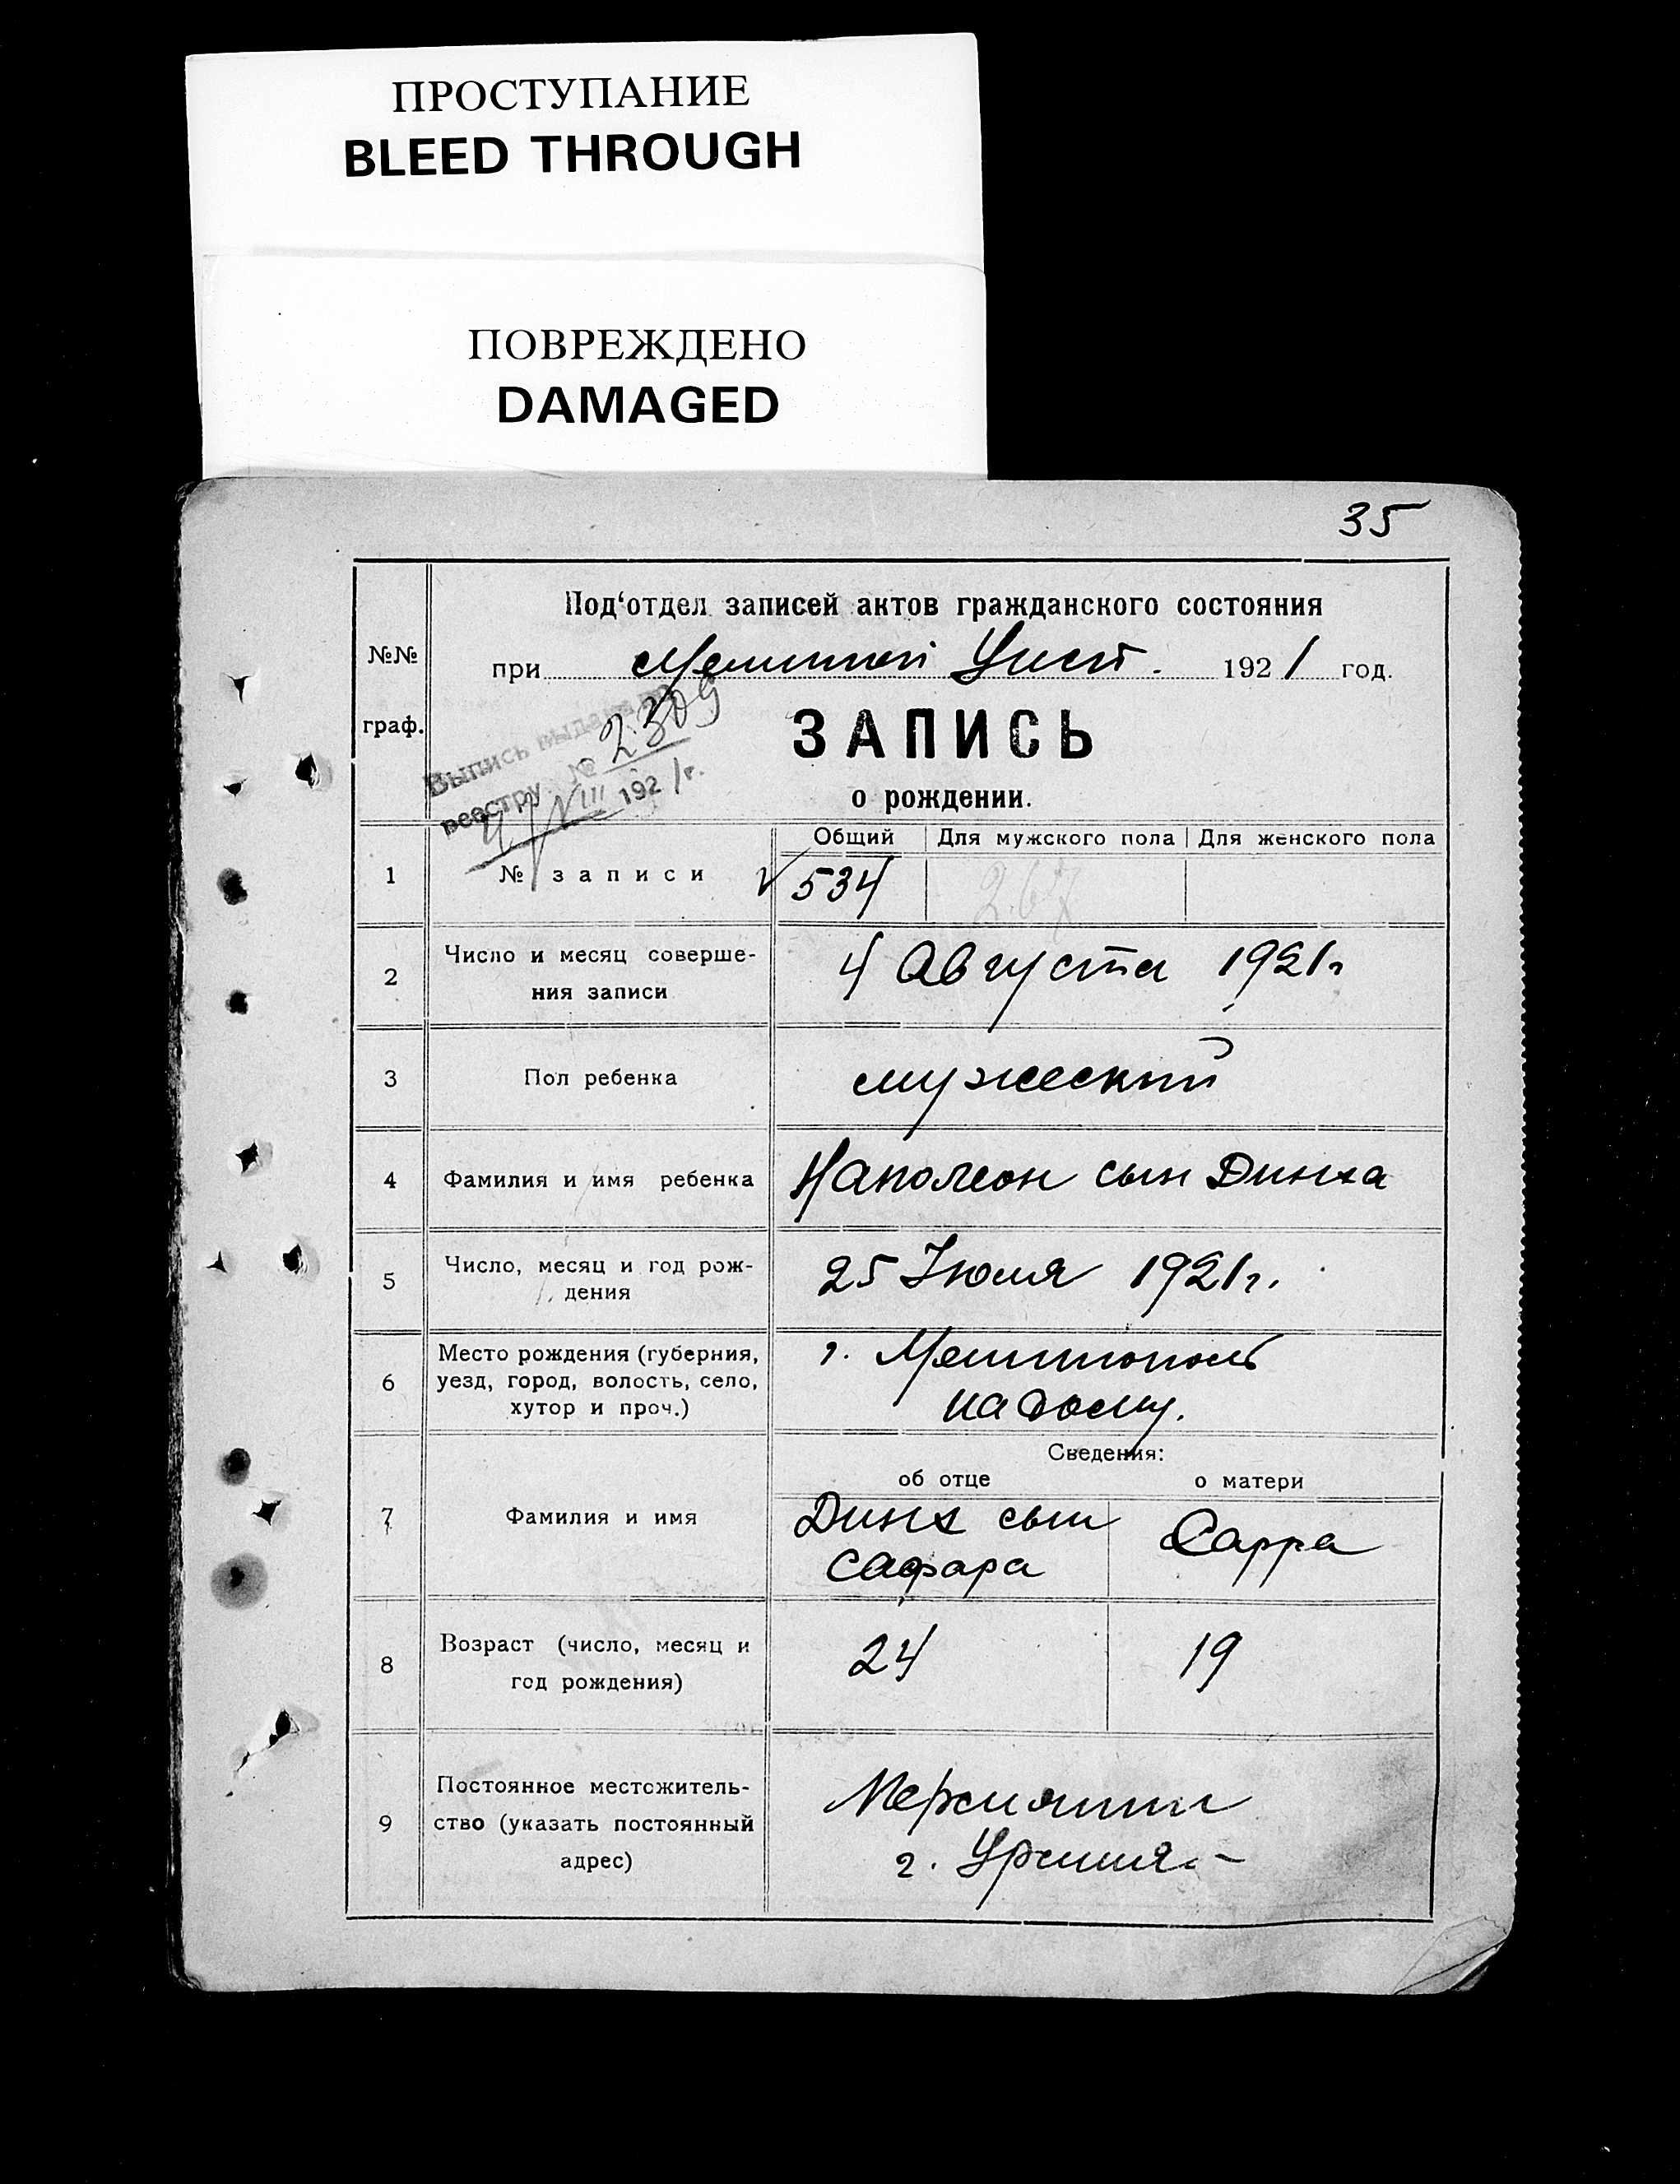 ПРОСТУПАНИЕ
BLEED THROUGH
ПОВРЕЖДЕНО
DAMAGED
35
№№
граф.
Под‘отдел записей актов гражданского состояния
при 1921 год.
Выпись выдана по
реестру № 2309
4/VIII 1921г.
ЗАПИСЬ
о рождении.
Общий Для мужского пола Для женского пола
1 № записи 534 267
2 Число и месяц соверше-
ния записи
4 Августа 1921г
3 Пол ребенка мужеский
4 Фамилия и имя ребенка Наполеон сын Динха
5 Число, месяц и год рож-
дения
25 Июля 1921г.
6 Место рождения (губерния,
уезд, город, волость, село,
хутор и проч.)
г. Мелитополь
на дому.
Сведения:
об отце о матери
7 Фамилия и имя
Динх сын
Сафара
Сарра
8 Возраст (число, месяц и
год рождения)
24 19
9 Постоянное местожитель-
ство (указать постоянный
адрес)
г. Урмия